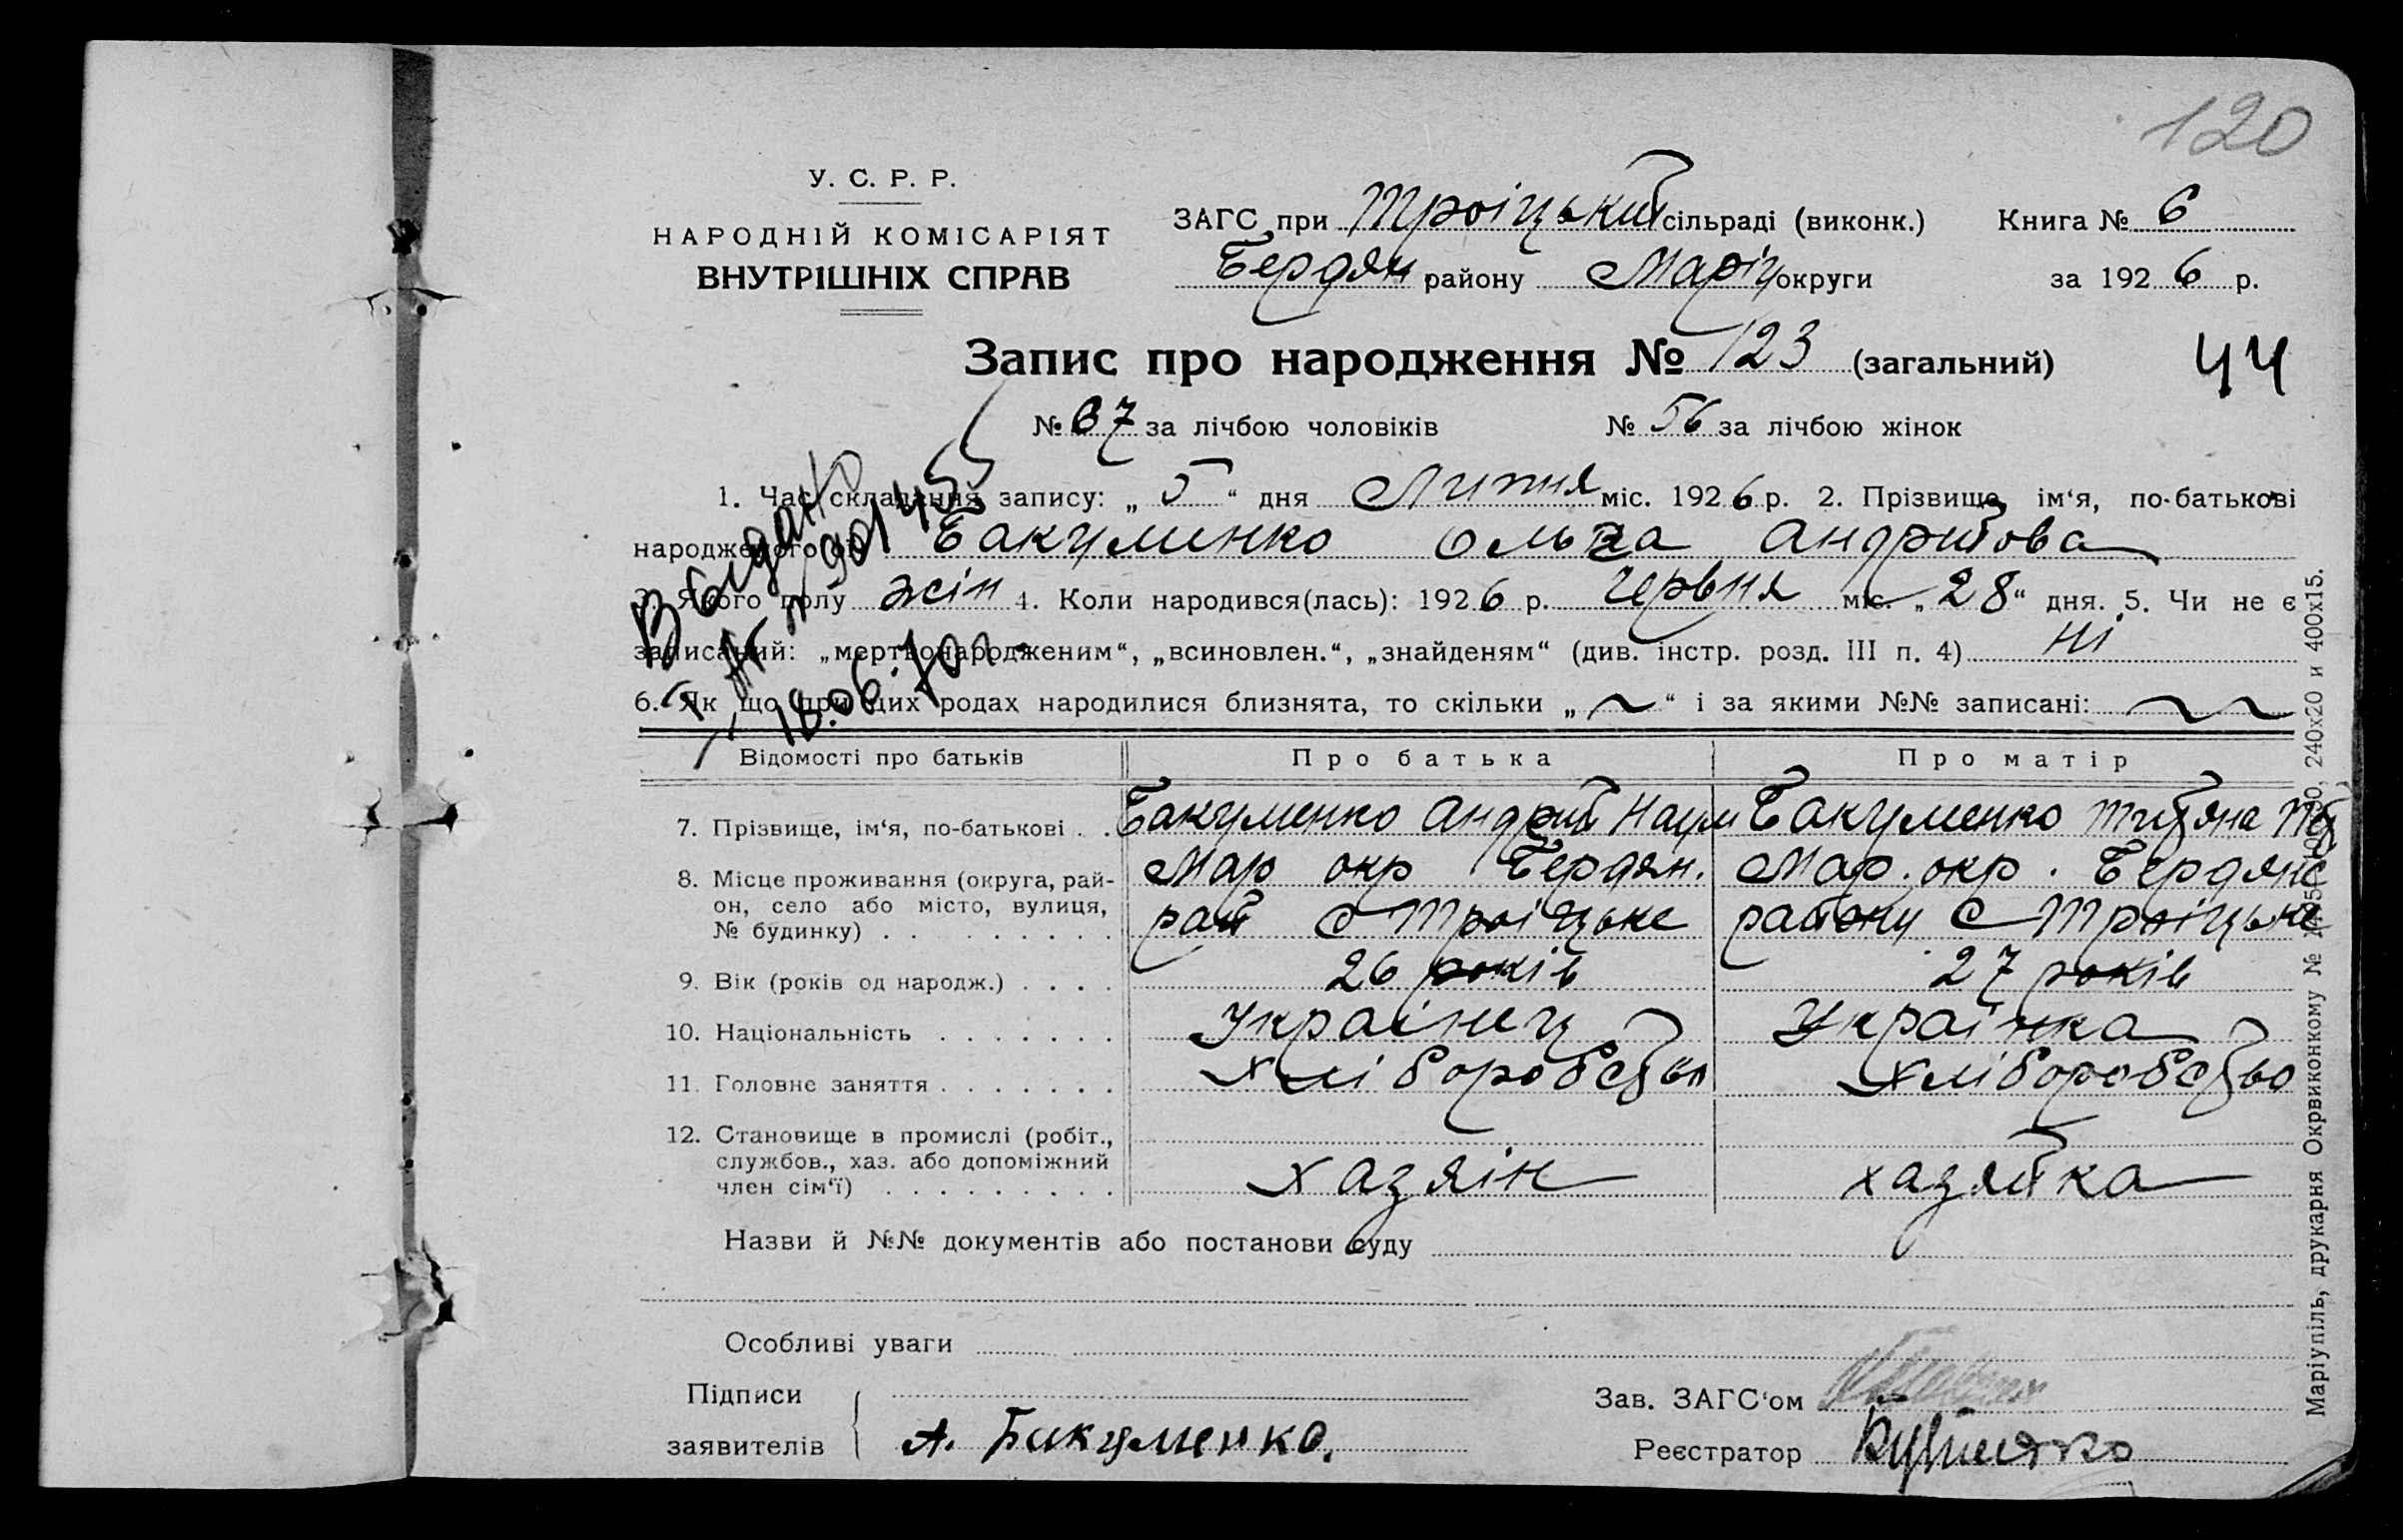 120
У. С. Р. Р.
НАРОДНІЙ КОМІСАРІЯТ
ВНУТРІШНІХ СПРАВ
ЗАГС при Троіцький сільраді (виконк.) Книга № 6
Бердян району Маріу округи за 1926 р.
Запис про народження № 123 (загальний) 44
№ 67 за лічбою чоловіків № 56 за лічбою жінок
1. Час складання запису: „ 5 “ дня Липня міс. 1926 р. 2. Прізвище, ім‘я, по-батькові
народженого ої Бакуменко Ольга Андрийова
3. Якого полу жін 4. Коли народився(лась): 1926 р. Червня міс. „28“ дня. 5. Чи не є
записаний: „мертвонародженим“, „всиновлен.“, „знайденям“ (див. інстр. розд. III п. 4) Ні
6. Як що при цих родах народилися близнята, то скільки „ ~ “ і за якими №№ записані:
Выдано
18.06.70
Відомості про батьків Про батька Про матір
7. Прізвище, ім‘я, по-батькові . . Бакуменко Андрий Наум Бакуменко
8. Місце проживання (округа, рай- Мар окр Бердян. Мар. окр. Бердянс
он, село або місто, вулиця, рай с Троіцьке району с Троіцьке
№ будинку) . . . . . . . . .
9. Вік (років од народж.) . . . . 26 років 27 років
10. Національність . . . . . . . Украінец Украінка
11. Головне заняття . . . . . . . Хліборобство Хліборобство
12. Становище в промислі (робіт.,
службов., хаз. або допоміжний Хазяін хазяйка
член сім‘ї) . . . . . . . . .
Назви й №№ документів або постанови суду
Особливі уваги
Підписи Зав. ЗАГС‘ом
заявителів А. Бакуменко. Реєстратор
Маріупіль, друкарня Окрвиконкому № 240x20 и 400x15.